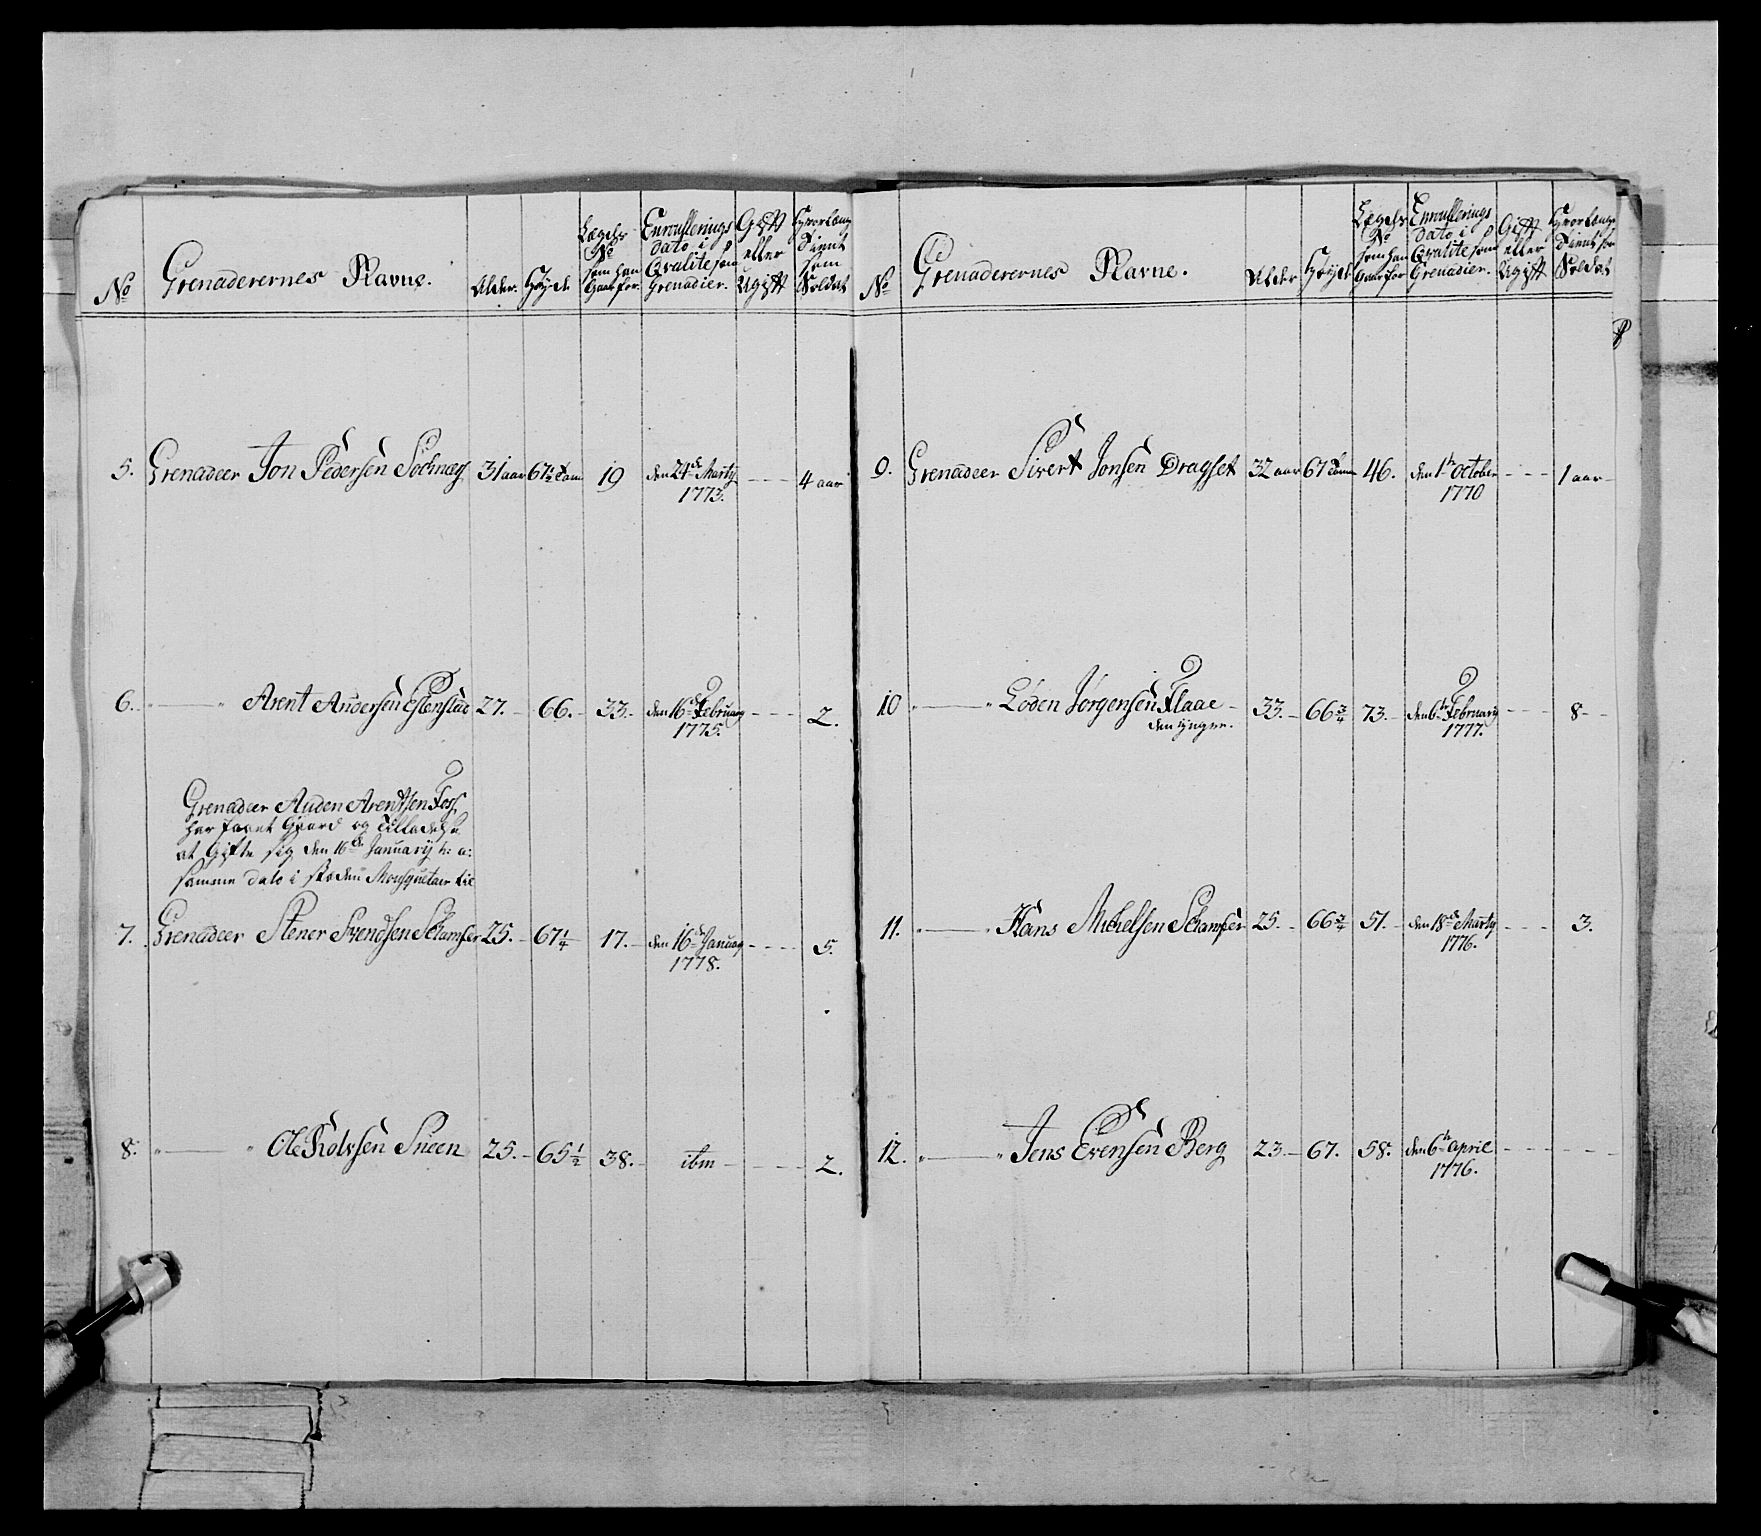 No
Grenaderernes Navne.
Alder.
Høyde.
Lægds
No
som han
Gaar for.
Enroullerings
Dato i
Qvalite som
Grenadier.
Gift
eller
Ugift
Hvorlænge
Tient
som
Soldat
5. Grenadeer Jon Pedersen 31 aar 67½ Tom 19 den 24de Marty - - - 4 aar
1773.
6. Arent Andersen Estenstad 27. 66. 33. den 16de February - - - 2.
1775.
Grenadeer Auden Arentsen Foss
har faaet Gaard og Tilladelse
at Gifte sig den 16de January h: a:
samme Dato i steden Mousquetair til
7. Grenadeer Stener Svendsen Schamfer 25. 67¼ 17. den 16de January - - - 5.
1778.
8. Ole Rolvsen Sneen 25. 65½ 38. ibm - - - 2.
No
Grenaderernes Navne.
Alder
Høyde
Lægds
No
som han
Gaar for
Enroullerings
Dato i
Qvalite som
Grenadier.
Gift
eller
Ugift
Hvorlænge
Tient som
Soldat
9. Grenadeer Sivert Jonsen Dragset 32 aar 67 Tom 46. den 1te October - - - 1 aar
1770
10 Loden Jørgensen Flaae 33. 66¾ 73. den 6te February - - - 8
den yngre. 1777.
11. Hans Michelsen Schamfer 25. 66¾ 51. den 18de Marty - - - 3.
1776.
12. Jens Evensen Berg 23 67. 58. den 6te April - - -
1776.